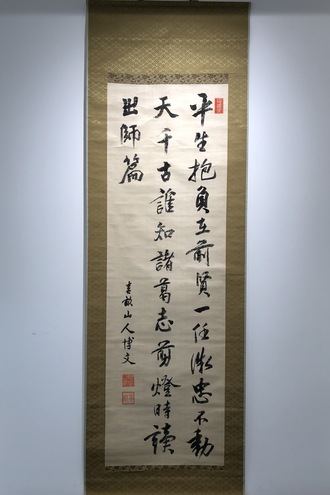 平生抱負在前賢一任微忠不動
天千古誰知諸葛志剪燈時讀
出師篇
春畝山人博文